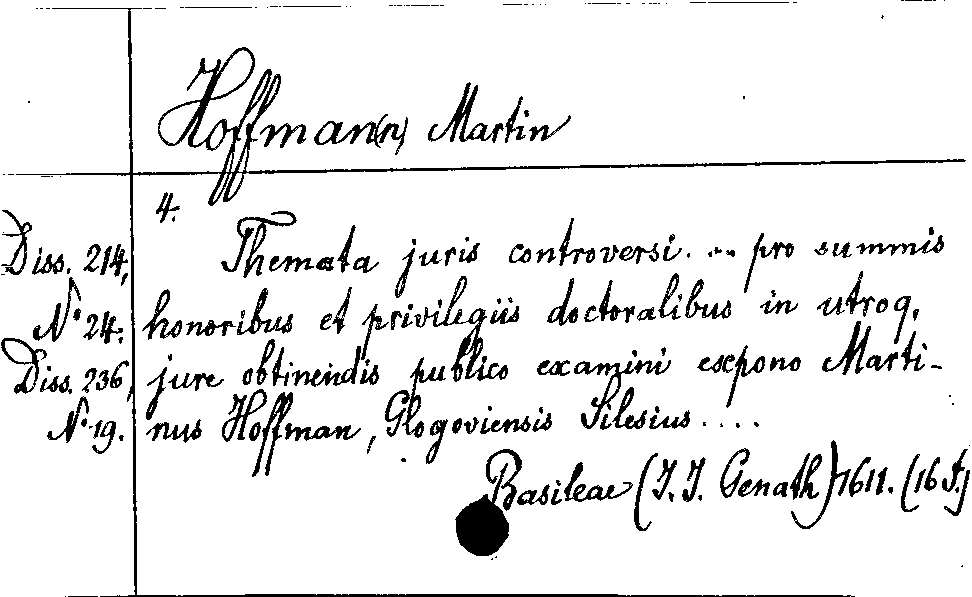 Hoffman(n) Martin
4.
Diss. 214, Themata juris controversi. ... pro summis
N° 24. honoribus et privilegiis doctoralibus in utroq.
Diss. 236, jure obtinendis publico examini expono Marti-
N° 19. nus Hoffman, Glogoviensis Silesius ....
Basileae (J. J. Genath) 1611. (16 S.)